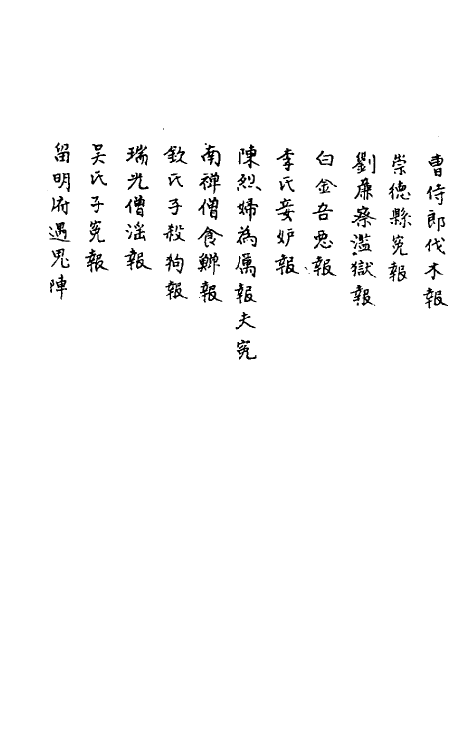 曹侍郎伐木報
崇徳縣寃報
劉廉察濫獄報
白金吾惡報
李氏妾妒報
陳烈婦為厲報夫寃
南禅僧食鱓報
欽氏子殺狗報
瑞光僧淫報
吴氏子寃報
留明府遇鬼陣